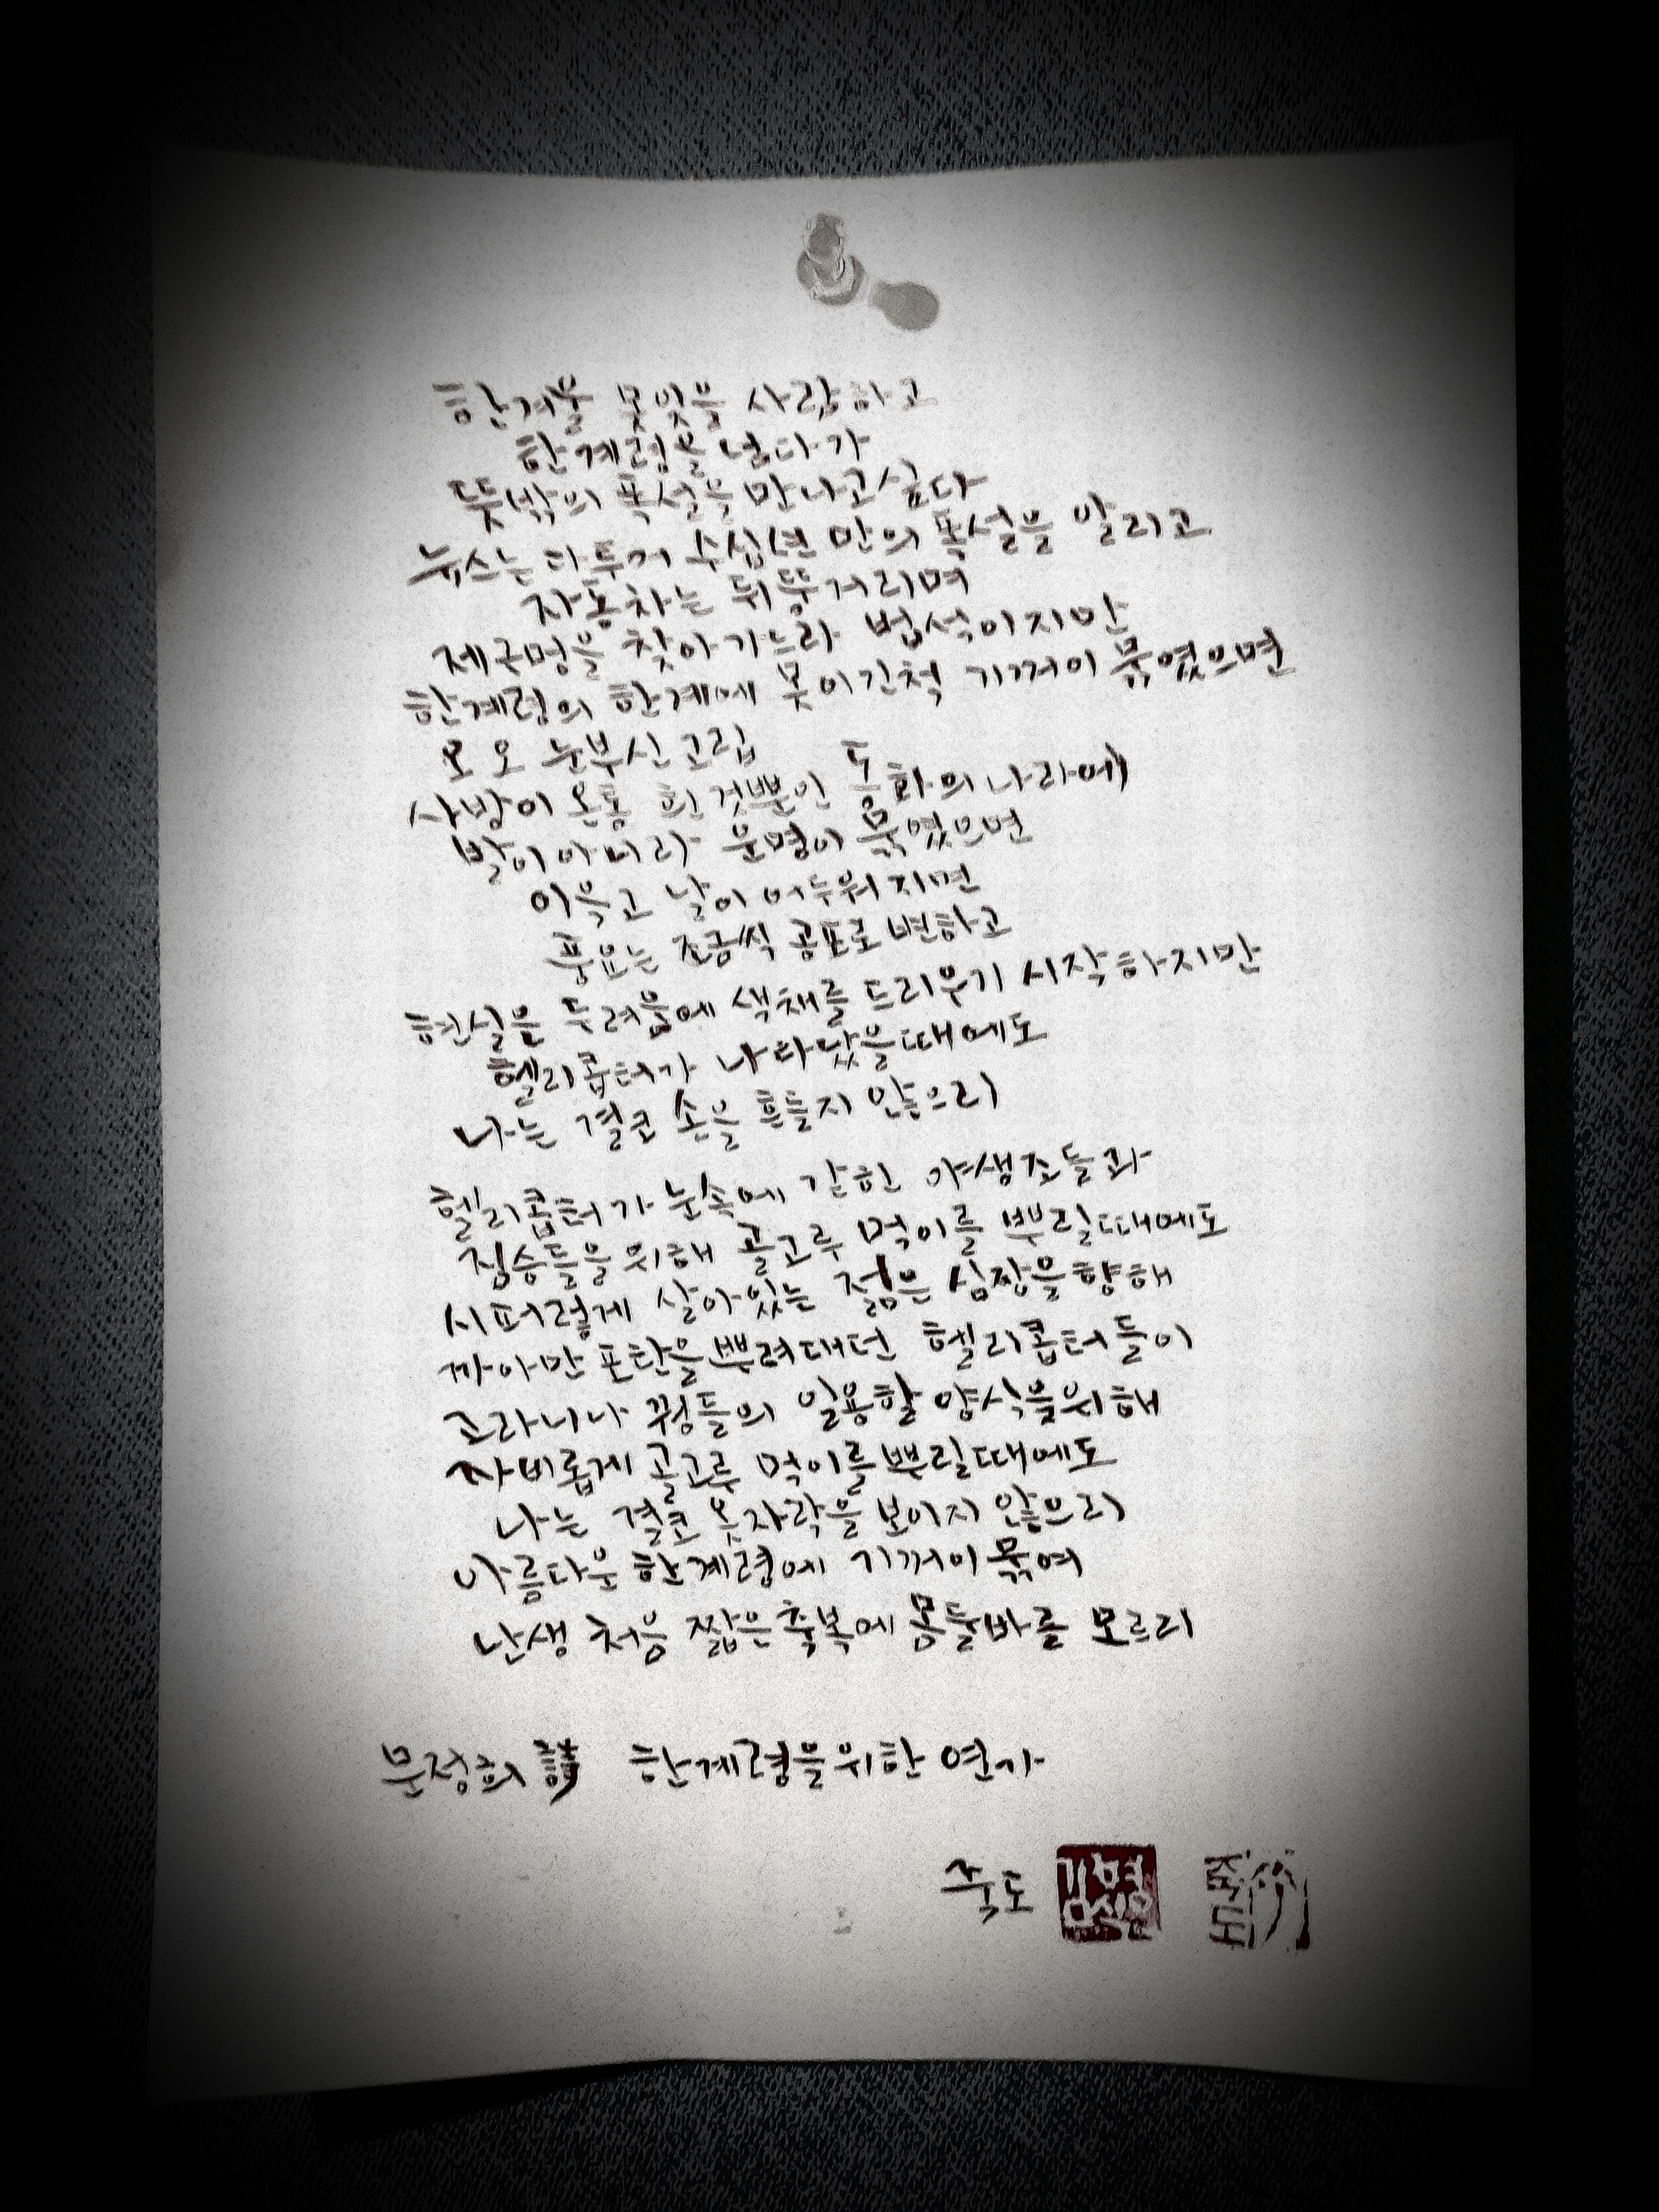 한겨울 못잊을 사람하고
한계령을 넘다가
뜻밖의 폭설을 만나고싶다
뉴스는 다투어 수십년 만의 폭설을 알리고
자동차는 뒤뚱거리며
제구멍을 찾아가느라 법석이지만
한계령의 한계에 못이긴척 기꺼이 묶였으면
오오 눈부신 고립
사방이 온통 흰 것뿐인 동화의나라에
발이아니라 운명이 묶였으면
이윽고 날이 어두워지면
풍요는 조금씩 공포로 변하고
현실은 두려움에 색채를 드리우기 시작하지만
헬리콥터가 나타났을때에도
나는 결코 손을 흔들지 않으리
헬리콥터가 눈속에 갇힌 야생조들과
짐승들을위해 골고루 먹이를 뿌릴때에도
시퍼렇게 살아있는 젊은 심장을향해
까아만 포탄을뿌려대던 헬리콥터들이
고라니나 꿩들의 일용할 양식을위해
자비롭게 골고루 먹이를뿌릴때에도
나는 결코 옷자락을 보이지 않으리
아름다운 한계령에 기꺼이 묶여
난생 처음 짧은축복에 몸둘바를 모르리
문정희 한계령을위한 연가
죽도
죽도